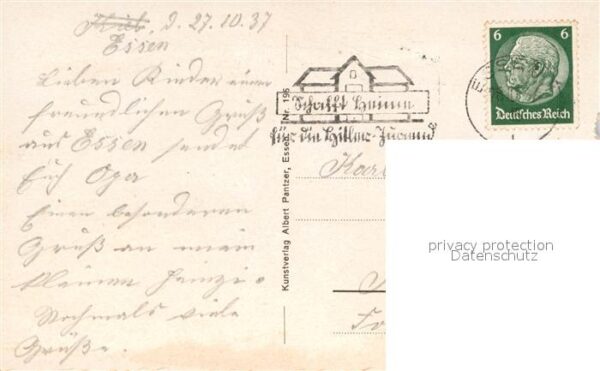 d. 27.10.37
Essen
Lieben Kinder einen
freundlichen Gruß
aus Essen sendet
Euch Opa
Einen besonderen
Gruß an mein
kleinen Heinzi.
Nochmals viele
Grüße.
Kunstverlag Albert Pantzer, Essen Nr. 195
Schafft Heime
für die Hitler-Jugend
6 6
Deutsches Reich
Karl
privacy protection
Datenschutz